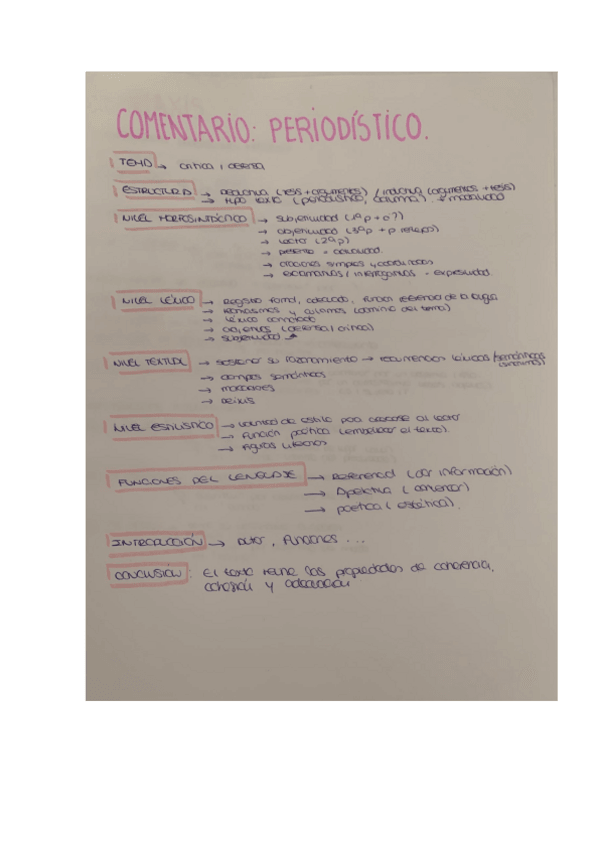 COMENTARIO: PERIODÍSTICO.
TEMA → crítica / defensa
ESTRUCTURA → deductiva (tesis + argumentos) / inductiva (argumentos + tesis)
→ tipo texto (periodístico, columna) modalidad
NIVEL MORFOSINTÁCTICO → subjetividad (1ª p + )
→ objetividad (3ª p + p refleja)
→ lector (2ª p)
→ presente = actualidad
→ oraciones simples y coordinadas
→ exclamativas / interrogativas = expresividad
NIVEL LÉXICO → Registro formal, adecuado, función referencial de la lengua
→ y cultismos (dominio del tema)
→ léxico connotado
→ adjetivos (defensa / crítica)
→ subjetividad
NIVEL TEXTUAL → sostener su razonamiento → recurrencias léxicas / semánticas
(sinónimos)
→ campos semánticos
→ marcadores
→ deixis
NIVEL ESTILÍSTICO → voluntad de estilo para acercarse al lector
→ Función poética (embellecer el texto).
→ Figuras literarias
FUNCIONES DEL LENGUAJE → Referencial (dar información)
→ Apelativa (convencer)
→ poética (estética).
INTRODUCCIÓN → autor, funciones ...
CONCLUSIÓN: El texto reune las propiedades de coherencia,
cohesión y adecuación